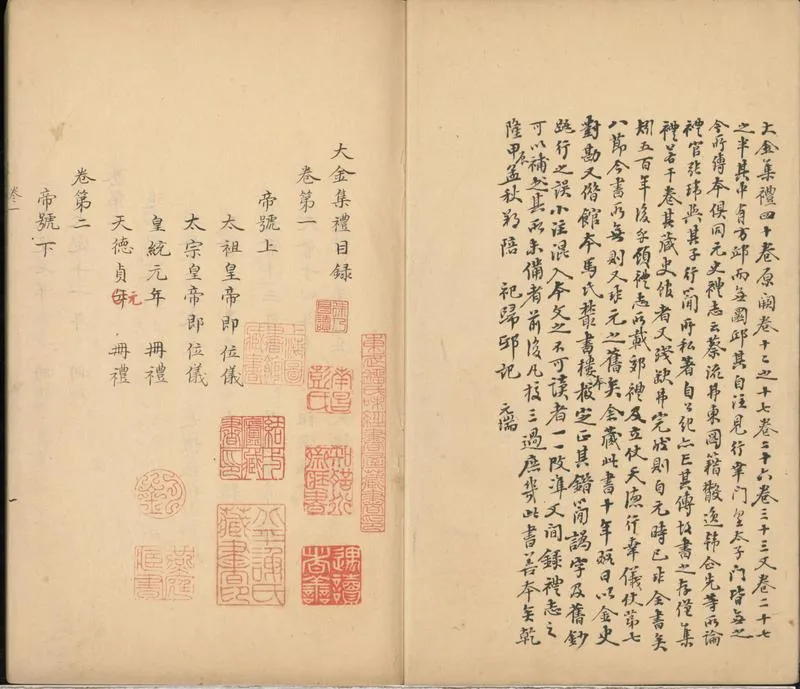 大金集禮四十卷原闕卷十二之十七卷二十六卷三十三又卷二十七
之半其中有方邱而無圜邱其自注見行宮門皇太子門皆無之
今所傳本俱同元史禮志云蔡流弗東圖籍散逸韓企先等所論
禮官張瑋與其子行簡所私著自公紀亦亡其傳故書之存僅集
禮若干卷其藏史館者又殘缺弗完然則自元時已非全書矣
五百年後 禮志所載郊禮及立仗天德行幸儀仗第七
八節今書所無則又非元之舊矣余藏此書十年 日以金史
對勘又偕館本馬氏叢書樓本校定正其錯簡譌字及舊鈔
跳行之誤小注混入本文之不可讀者一一改準又間錄禮志之
可以補其所未備者前後凡校三過庶幾此書善本矣乾
隆甲辰孟秋 陪 祀歸邸記 元瑞
大金集禮目錄
卷第一
帝號上
太祖皇帝即位儀
太宗皇帝即位儀
皇統元年 冊禮
天德貞元 冊禮
卷第二
帝號下
卷一
南昌彭氏
知聖道齋藏書
遇讀者善
結一廬藏書印